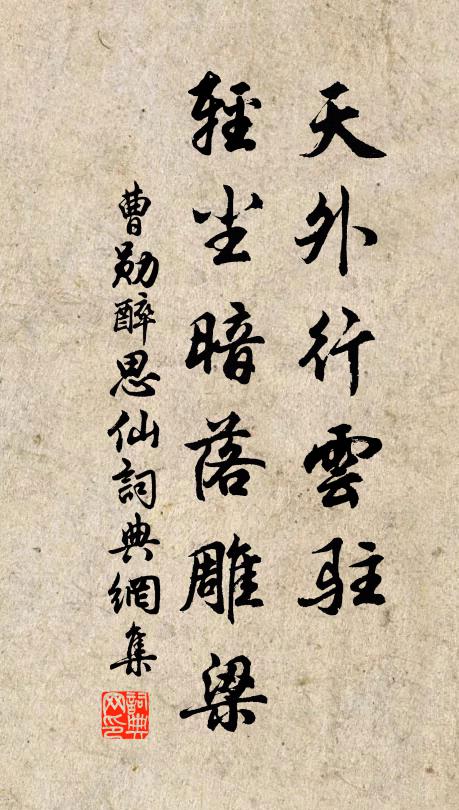 天外行雲駐
輕尘暗落雕梁
曹勛醉思仙詞典網集
詞典网印